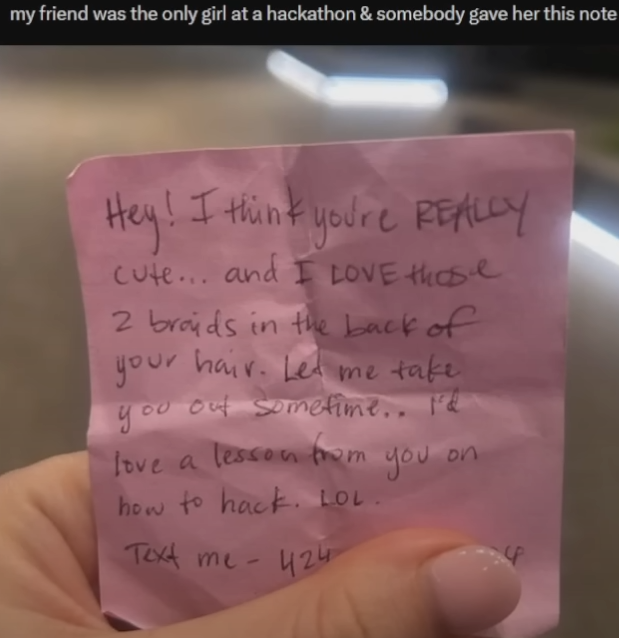 my friend was the only girl at a hackathon & somebody gave her this note
Hey! I think you're REALLY
cute... and I LOVE those
2 braids in the back of
your hair. Let me take
you out sometime.. I'd
love a lesson from you on
how to hack. LOL.
Text me - 424